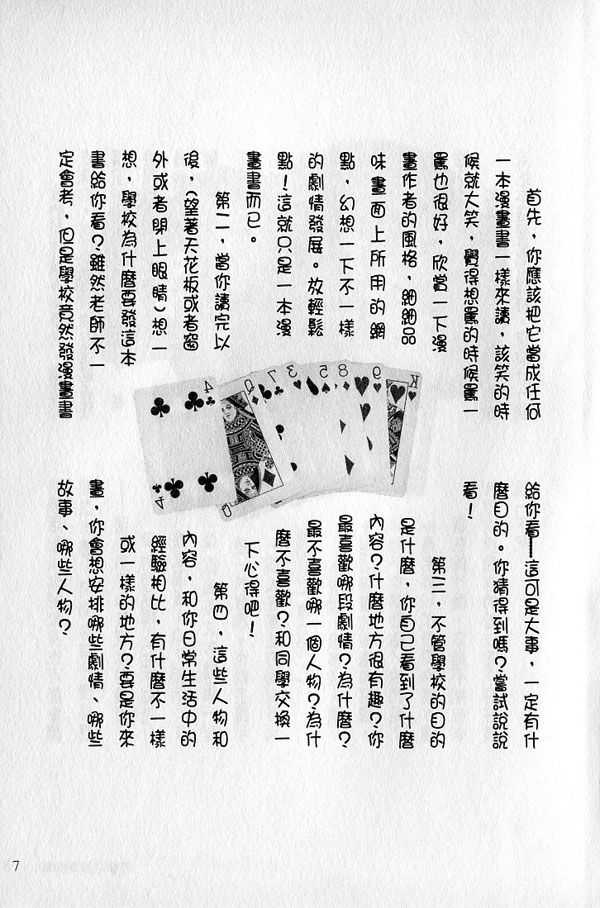 首先，你應該把它當成任何
一本漫畫書一樣來讀，該笑的時
候就大笑，覺得想罵的時候罵一
罵也很好，欣賞一下漫
畫作者的風格，細細品
味畫面上所用的網
點，幻想一下不一樣
的劇情發展。放輕鬆
點！這就只是一本漫
畫書而已。
第二，當你讀完以
後，（望著天花板或者窗
外或者閉上眼睛）想一
想，學校為什麼要發這本
書給你看？雖然老師不一
定會考，但是學校竟然發漫畫書
給你看──這可是大事，一定有什
麼目的。你猜得到嗎？嘗試說說
看！
第三，不管學校的目的
是什麼，你自己看到了什麼
內容？什麼地方很有趣？你
最喜歡哪段劇情？為什麼？
最不喜歡哪一個人物？為什
麼不喜歡？和同學交換一
下心得吧！
第四，這些人物和
內容，和你日常生活中的
經驗相比，有什麼不一樣
或一樣的地方？要是你來
畫，你會想安排哪些劇情、哪些
故事、哪些人物？
4
Q
7
3
5
8
9
K
4
Q
7